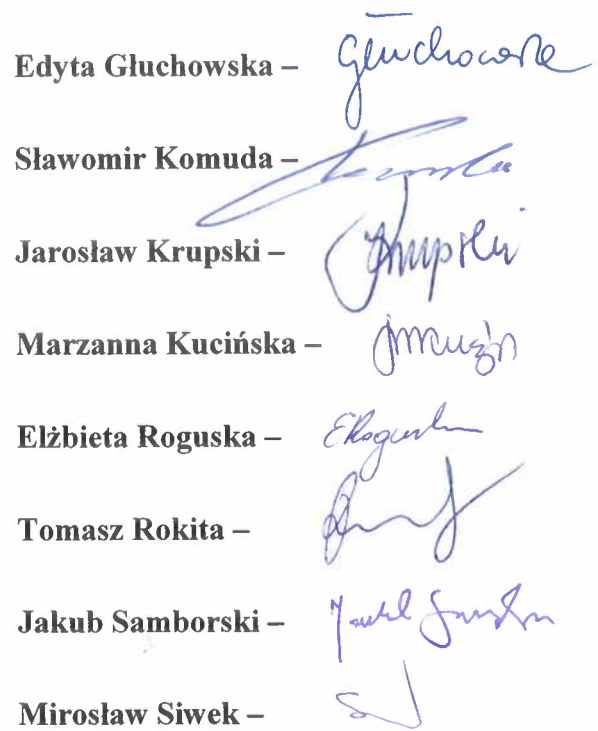 Edyta Głuchowska – Głuchowska
Sławomir Komuda –
Jarosław Krupski – Krupski
Marzanna Kucińska –
Elżbieta Roguska – ERoguska
Tomasz Rokita –
Jakub Samborski – Jakub
Mirosław Siwek –